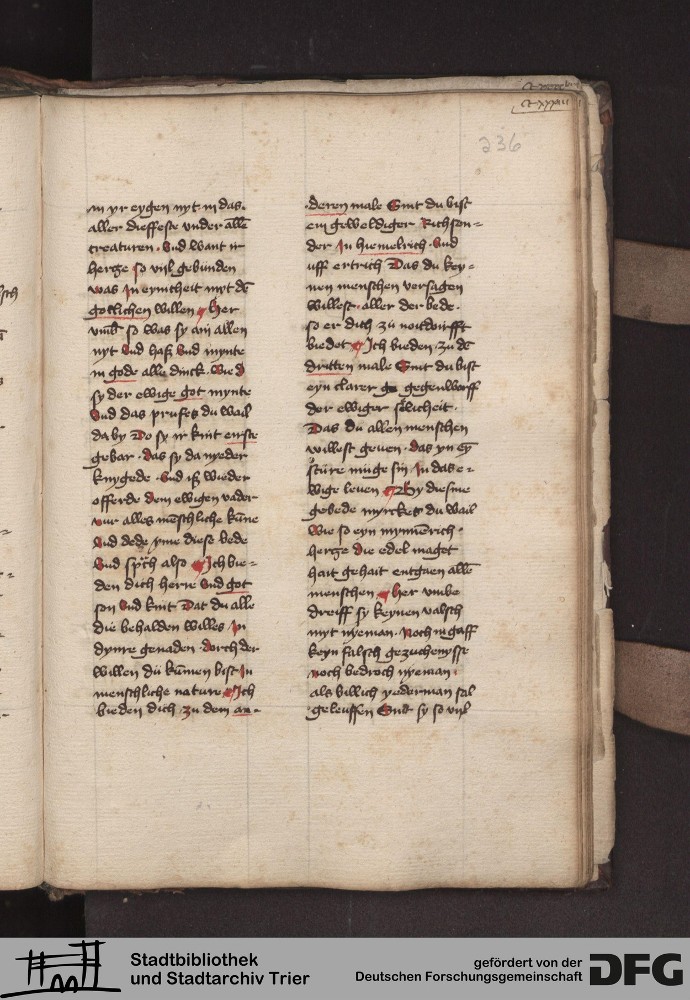 236
in yr eygen nyt in das
aller dieffeste vnder allē
creaturen. Vnd want ir
hercze so vijl gebunden
was in eynicheit myt dē
gotlichen willen Her
vmb so was sy ain allen
nyt Vnd hasz Vnd mynte
in gode alle dinck. Wie d
sy der ewige got mynte
Vnd das prufet du wail
da by Do sy ir kint eirste
gebar. das sy da nyeder
knygede. Vnd isz wieder
offerde dem ewigen vader
vur alles mēschliche kūne
Vnd dede yme diese bede
Vnd sprch also Ich bie-
den dich herre Vnd got
son Vnd kint Dat du alle
die behalden willes in
dynre genaden. dorch der
willen du kūmen bist in
menschliche nature Ich
bieden dich zu dem an-
deren male Sint du bist
ein geweldiger Richson-
der In hiemelrich. Vnd
uff ertrich Das du key-
nen menschen versagen
willest. aller der bede.
so er dich zu noitdorfft
biedet Ich bieden zu dē
dritten male Sint du bist
eyn clarer gegenworff
der ewiger selicheit.
Das du allen menschen
willest geuen. das yn ey
sture muge sin in das e-
wige leuen By diesme
gebede myrcket du wail
Wie so eyn mynnērich.
hercze die edel maget
hait gehait entgaen allē
menschen Her vmbe
dreiff sy keynen valsch
myt nyeman. Noch in gaff
keyn falsch gezuchenysse
noch bedroch nyeman.
als billich yederman sal
geleuffen Sint sy so vijl
Stadtbibliothek
und Stadtarchiv Trier
gefördert von der
Deutschen Forschungsgemeinschaft
DFG